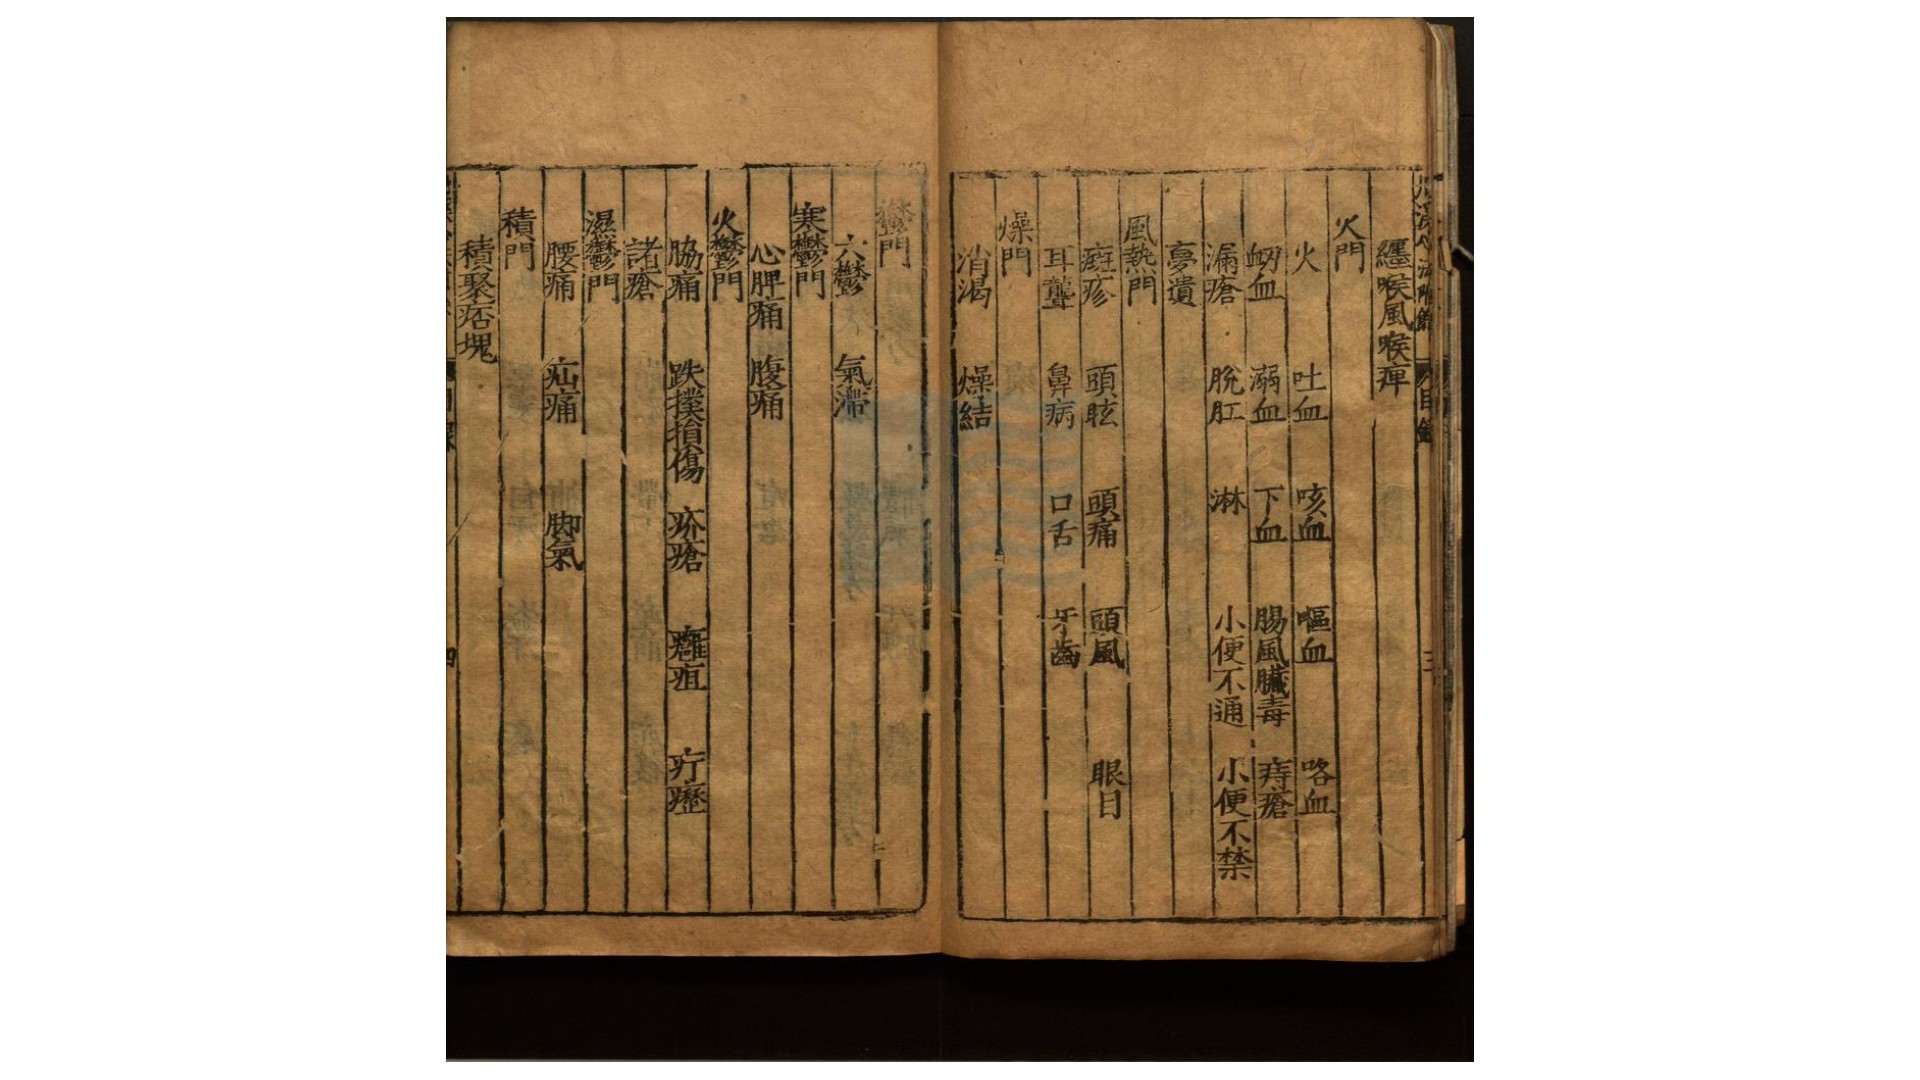 纏喉風喉痺
火門
火 吐血 咳血 嘔血 咯血
衂血 溺血 下血 腸風臟毒 痔瘡
漏瘡 脫肛 淋 小便不通 小便不禁
夢遺
風熱門
癍疹 頭眩 頭痛 頭風 眼目
耳聾 鼻病 口舌 牙齒
燥門
消渴 燥結
鬱門
六鬱 氣滯
寒鬱門
心脾痛 腹痛
火鬱門
脇痛 跌撲損傷 疥瘡 癰疽 疔癧
諸瘡
濕鬱門
腰痛 疝痛 脚氣
積門
積聚痞塊